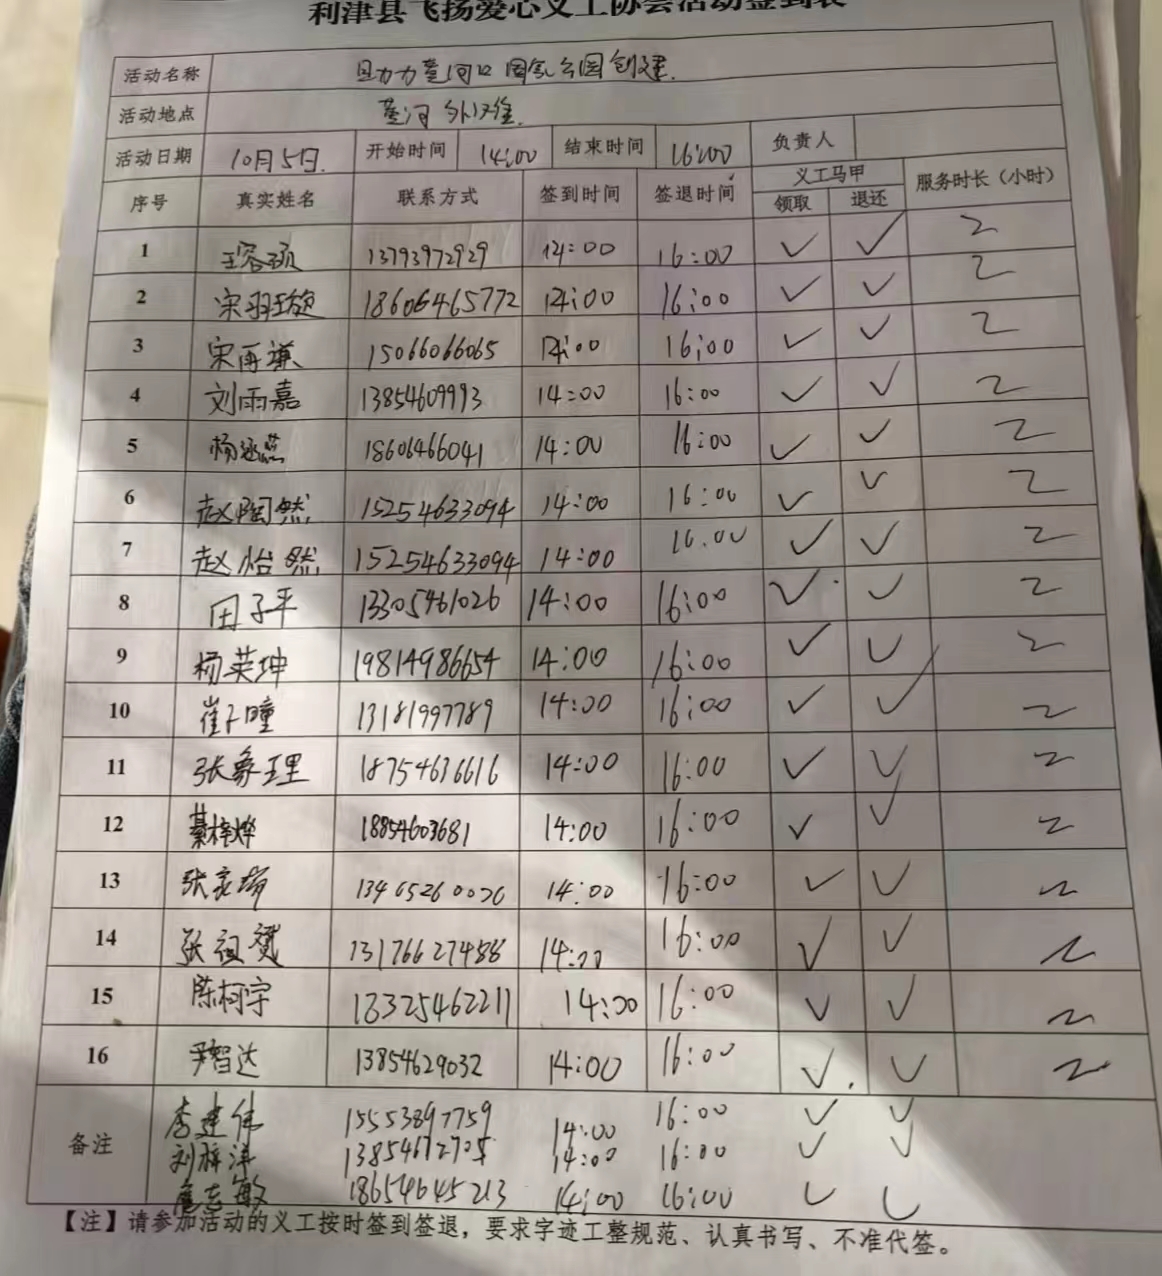 利津县飞扬爱心义工协会活动签到表
活动名称 助力黄河口国家公园创建.
活动地点 黄河外滩.
活动日期 10月5日. 开始时间 14:00 结束时间 16:00 负责人
序号 真实姓名 联系方式 签到时间 签退时间 义工马甲 服务时长（小时）
领取 退还
1 王容硕 13793972929 14:00 16:00 ✓ ✓ 2
2 宋羽璇 18606465772 14:00 16:00 ✓ ✓ 2
3 宋雨谦 15066066065 14:00 16:00 ✓ ✓ 2
4 刘雨嘉 13854609993 14:00 16:00 ✓ ✓ 2
5 杨涵燕 18606466041 14:00 16:00 ✓ ✓ 2
6 赵陶然 15254633094 14:00 16:00 ✓ ✓ 2
7 赵怡然 15254633094 14:00 16:00 ✓ ✓ 2
8 田子平 13305461026 14:00 16:00 ✓ ✓ 2
9 杨英坤 19814986654 14:00 16:00 ✓ ✓ 2
10 崔子瞳 13181997789 14:00 16:00 ✓ ✓ 2
11 张象理 18754636616 14:00 16:00 ✓ ✓ 2
12 綦梓烨 18854603681 14:00 16:00 ✓ ✓ 2
13 张家瑞 14:00 16:00 ✓ ✓ 2
14 张祖赟 13176627488 14:00 16:00 ✓ ✓ 2
15 陈柯宇 18325462211 14:00 16:00 ✓ ✓ 2
16 尹智达 13854629032 14:00 16:00 ✓ ✓ 2
备注 李建伟 15553897759 14:00 16:00 ✓ ✓
刘梓洋 14:00 16:00 ✓ ✓
志敏 18654645213 14:00 16:00 ✓ ✓
【注】请参加活动的义工按时签到签退，要求字迹工整规范、认真书写、不准代签。